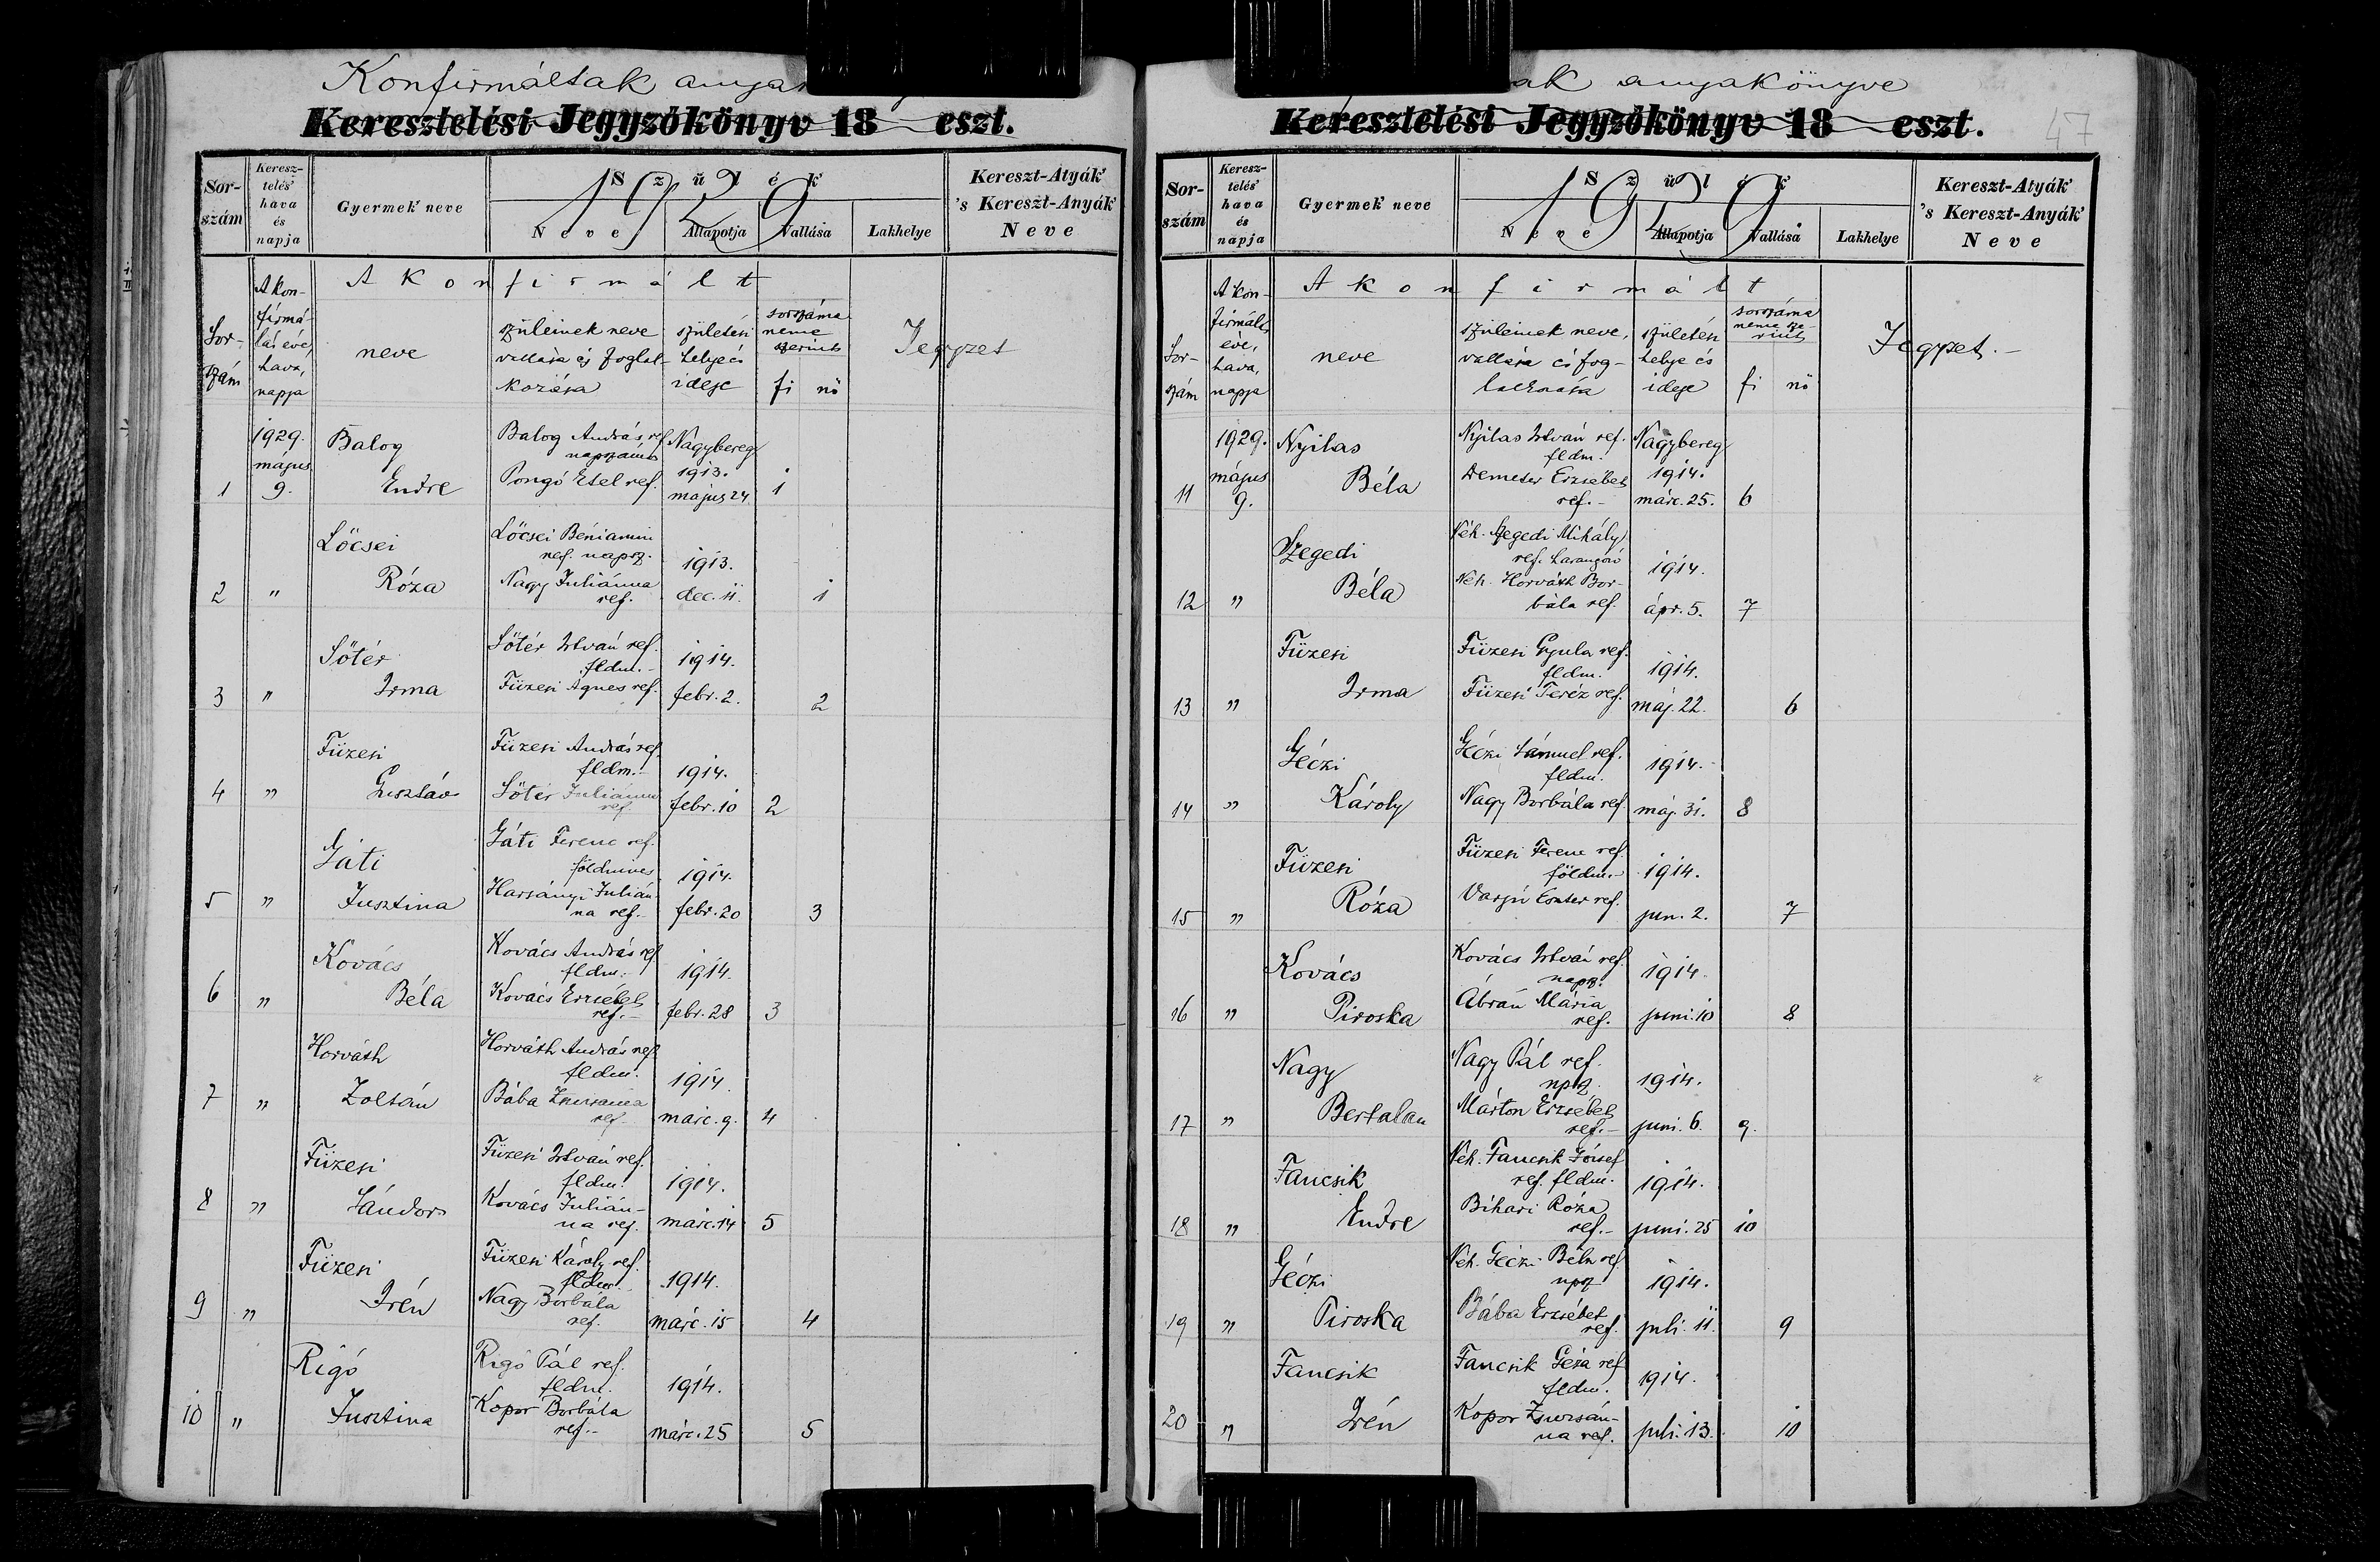 Konfirmáltak
Keresztelési Jegyzőkönyv 18 eszt.
Sor-szám
Keresz-telés' hava és napja
Gyermek neve
Szülék
1929
Neve
Állapotja
Vallása
Lakhelye
Kereszt-Atyák' 's Kereszt-Anyák' Neve
Sor-szám
A kon-firmá-lás éve, hava, napja
A konfirmált
neve
szüleinek neve vallása és foglal-kozása
születési helye és ideje
sorszáma neme szerint
fi nő
Jegyzet
1 1929. május 9.
Balog Endre
Balog András ref. napszámos
Pongó Etel ref.
Nagybereg 1913. május 24.
1
2 "
Lőcsei Róza
Lőcsei Béniamin ref. napsz.
Nagy Juliánna ref.
1913. dec. 11.
1
3 "
Sőtér Irma
Sőtér István ref. fldm.-
Füzesi Ágnes ref.
1914. febr. 2.
2
4 "
Füzesi Gusztáv
Füzesi András ref. fldm.-
Sőtér Juliánna ref.
1914. febr. 10
2
5 "
Gáti Jusztina
Gáti Ferenc ref. földmíves
Harsányi Julián-na ref.-
1914. febr. 20
3
6 "
Kovács Béla
Kovács András ref. fldm.-
Kovács Erzsébet ref.-
1914. febr. 28
3
7 "
Horváth Zoltán
Horváth András ref. fldm.
Bába Zsuzsanna ref.
1914. márc. 9.
4
8 "
Füzesi Sándor
Füzesi István ref. fldm.
Kovács Julián-na ref.
1914. márc. 14
5
9 "
Füzesi Irén
Füzesi Károly ref. fldm.
Nagy Borbála ref.
1914. márc. 15
4
10 "
Rigó Jusztina
Rigó Pál ref. fldm.
Kopor Borbála ref.-
1914. márc. 25
5
anyakönyve
47
Keresztelési Jegyzőkönyv 18 eszt.
Sor-szám
Keresz-telés' hava és napja
Gyermek neve
Szülék
1929
Neve
Állapotja
Vallása
Lakhelye
Kereszt-Atyák' 's Kereszt-Anyák' Neve
Sor-szám
A kon-firmálás éve, hava, napja
A konfirmált
neve
szüleinek neve, vallása és fog-lalkozása
születési helye és ideje
sorszáma neme sze-rint
fi nő
Jegyzet.-
11 1929. május 9.
Nyilas Béla
Nyilas István ref. fldm.
Demeter Erzsébet ref.-
Nagybereg 1914. márc. 25.
6
12 "
Szegedi Béla
Néh. Szegedi Mihály ref. harangozó
Néh. Horváth Bor-bála ref.
1914. ápr. 5.
7
13 "
Füzesi Irma
Füzesi Gyula ref. fldm.
Füzesi Teréz ref.
1914. máj. 22.
6
14 "
Géczi Károly
Géczi Sámuel ref. fldm.
Nagy Borbála ref.
1914.- máj. 31.
8
15 "
Füzesi Róza
Füzesi Ferenc ref. földm.-
Varjú Eszter ref.
1914. jun. 2.
7
16 "
Kovács Piroska
Kovács István ref. napsz.
Ábrán Mária ref.
1914. juni. 10
8
17 "
Nagy Bertalan
Nagy Pál ref. npsz.
Márton Erzsébet ref.-
1914. juni. 6.
9.
18 "
Fancsik Endre
Néh. Fancsik József ref. fldm.
Bihari Róza ref.-
1914. juni. 25
10
19 "
Géczi Piroska
Néh. Géczi Béla ref. npsz
Bába Erzsébet ref.
1914. juli. 11.
9
20 "
Fancsik Irén
Fancsik Géza ref. fldm.
Kopor Zsuzsán-na ref.
1914. juli. 13.
10